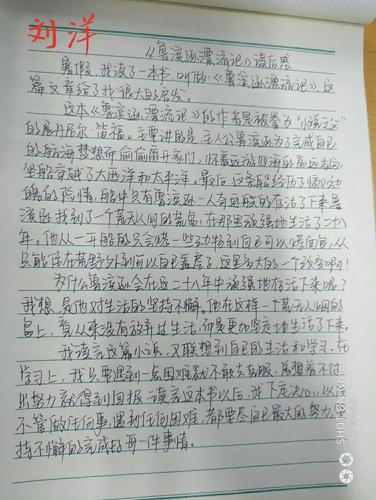 刘洋
《鲁滨逊漂流记》读后感
暑假,我读了一本书,叫做《鲁滨逊漂流记》,这
篇文章给了我很大的启发。
这本《鲁滨逊漂流记》的作者是被拳为"小说之父"
的展丹尼尔·笛福。主要讲的是:主人公鲁滨逊为了完成自己
的航海梦想而偷偷离开家门,怀着远游四海的高远志向,
坐船穿越了大西洋和太平洋。最后,这条船经历了惊心动
魄的险情,船中只有鲁滨逊一人奇迹般的存活了下来。鲁
滨逊找到了一个荒无人间的荒岛,在那里顽强地生活了二十八
年。他从一开始的只会烤一些动物到自己可以烤面包,从
只能住在荒野外到可以自己盖房子,这是多大的一个改变啊!
为什么鲁滨逊会在这二十八年中顽强地存活下来呢?
我想,是他对生活的坚持不懈。他在这样一个荒无人烟的
岛上,竟从来没有放弃过生活,而是更加坚定地生活了下来。
我读完这篇小说,又联想到自己的生活和学习。在
学习上,我只要遇到一点困难就不敢去克服,总想着不付
出努力就得到回报。读完这本书以后,我下定决心,以后
不管做任何事,遇到任何困难,都要尽自己最大的努力,坚
持不懈的完成好每一件事情。
SHOT ON